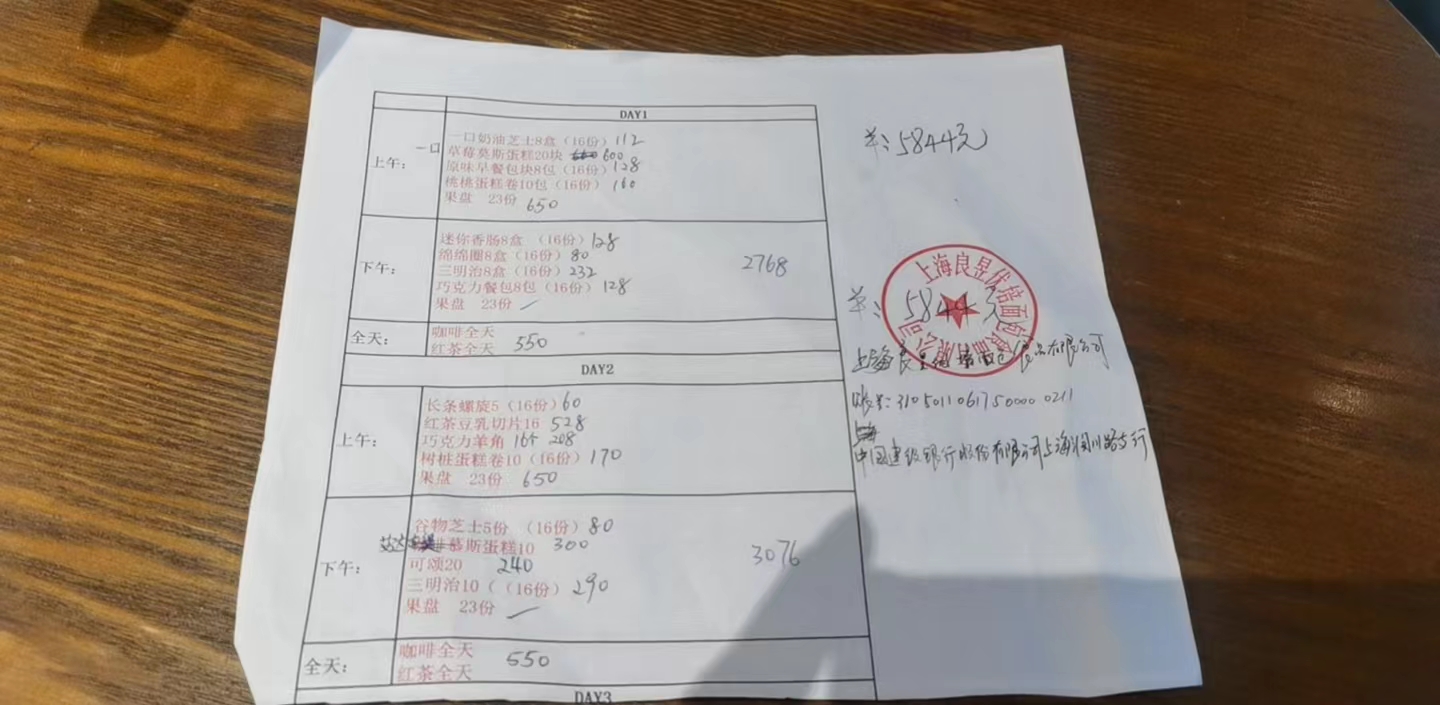 DAY1
上午：
一口
一口奶油芝士8盒（16份）112
草莓莫斯蛋糕20块 600
原味早餐包块8包（16份）128
桃桃蛋糕卷10包（16份）160
果盘 23份 650
下午：
迷你香肠8盒 （16份）128
绵绵圈8盒（16份）80
三明治8盒（16份）232
巧克力餐包8包（16份）128
果盘 23份
2768
全天：
咖啡全天
红茶全天 550
DAY2
上午：
长条螺旋5（16份）60
红茶豆乳切片16 528
巧克力羊角 16个 208
树桩蛋糕卷10（16份）170
果盘 23份 650
下午：
谷物芝士5份 （16份）80
慕斯蛋糕10 300
可颂20 240
三明治10（（16份）290
果盘 23份
3076
全天：
咖啡全天
红茶全天 550
DAY3
5844元
5844元
上海良昱伏培面包食品有限公司
31050110617500000211
中国建设银行股份有限公司上海川路支行